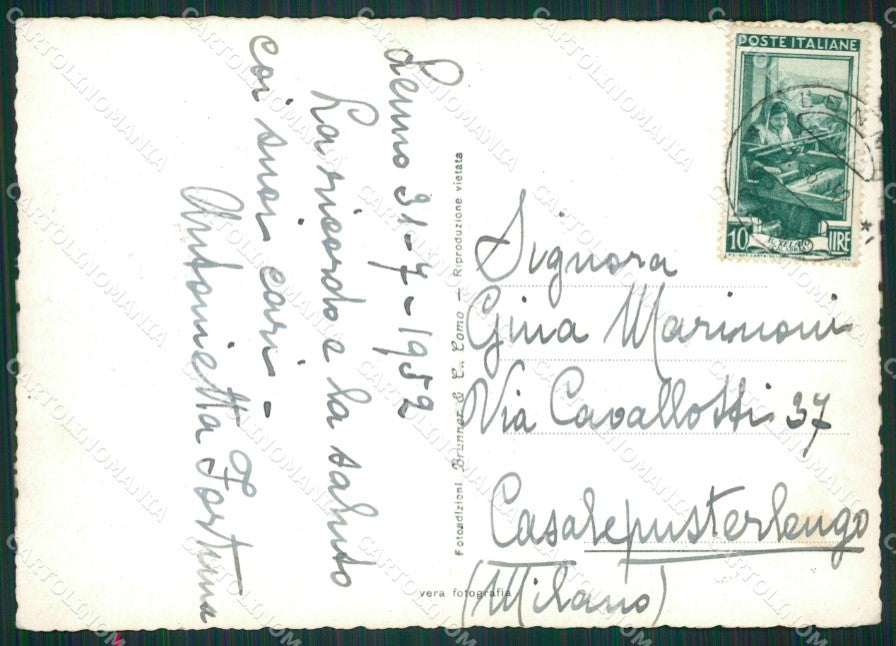 Lenno 31-7-1952
La ricordo e la saluto
coi suoi cari -
Antonietta Fortuna
Fotoedizioni Brunner & C. Como — Riproduzione vietata
vera fotografia
POSTE ITALIANE
10 LIRE
Signora
Gina Marinoni
Via Cavallotti 37
Casalepusterlengo
(Milano)
CARTOLINOMANIA